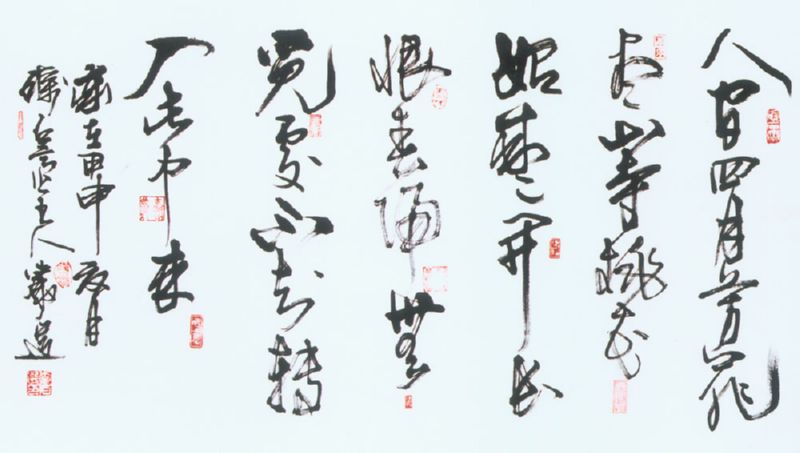 人間四月芳菲
盡山寺桃花
始盛開長
恨春歸無
覓處不知轉
入此中來
歲在甲申夏月
主人